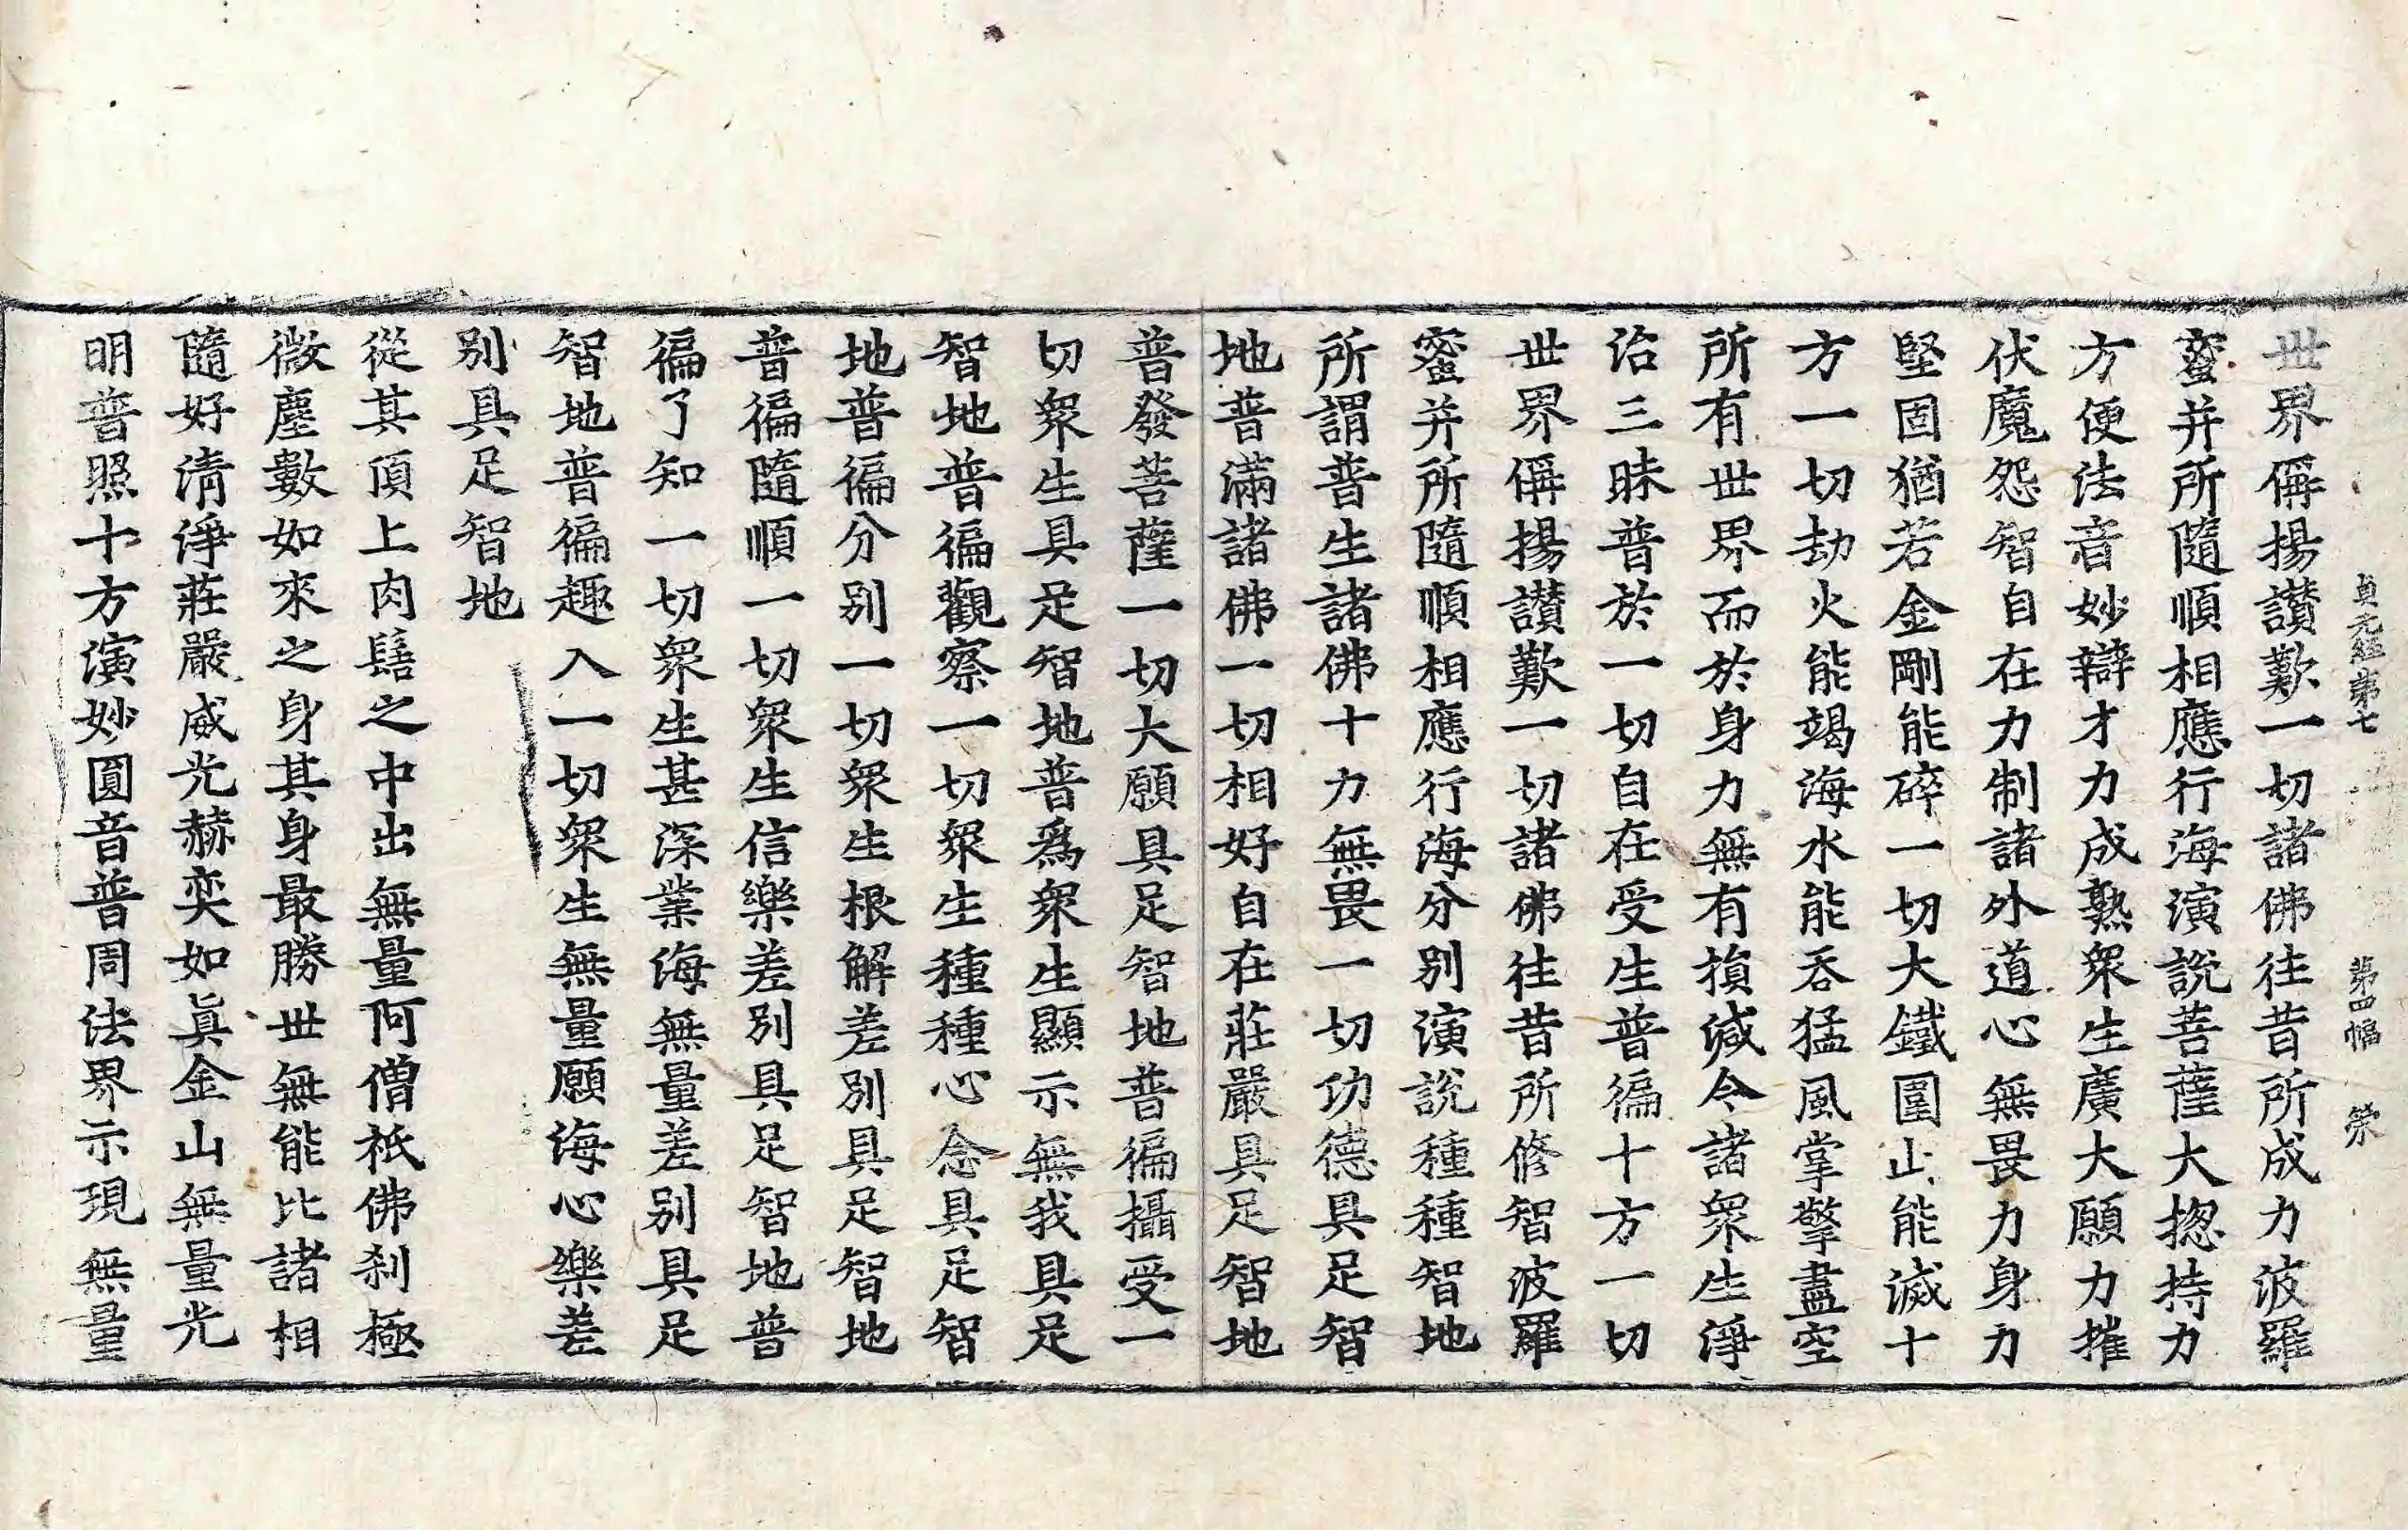 貞元經第七 第四幅 榮
世界偁揚讃歎一切諸佛往昔所成力波羅
蜜并所隨順相應行海演說菩薩大揔持力
方便法音妙辯才力成熟衆生廣大願力摧
伏魔怨智自在力制諸外道心無畏力身力
堅固猶若金剛能碎一切大鐵圍山能滅十
方一切劫火能竭海水能吞猛風掌擎盡空
所有世界而於身力無有損減令諸衆生淨
治三昧普於一切自在受生普徧十方一切
世界偁揚讃歎一切諸佛往昔所修智波羅
蜜并所隨順相應行海分別演說種種智地
所謂普生諸佛十力無畏一切功德具足智
地普滿諸佛一切相好自在莊嚴具足智地
普發菩薩一切大願具足智地普徧攝受一
切衆生具足智地普爲衆生顯示無我具足
智地普徧觀察一切衆生種種心念具足智
地普徧分別一切衆生根解差別具足智地
普徧隨順一切衆生信樂差別具足智地普
徧了知一切衆生甚深業海無量差別具足
智地普徧趣入一切衆生無量願海心樂差
別具足智地
從其頂上肉髻之中出無量阿僧祇佛刹極
微塵數如來之身其身最勝世無能比諸相
隨好清淨莊嚴威光赫奕如眞金山無量光
明普照十方演妙圓音普周法界示現無量